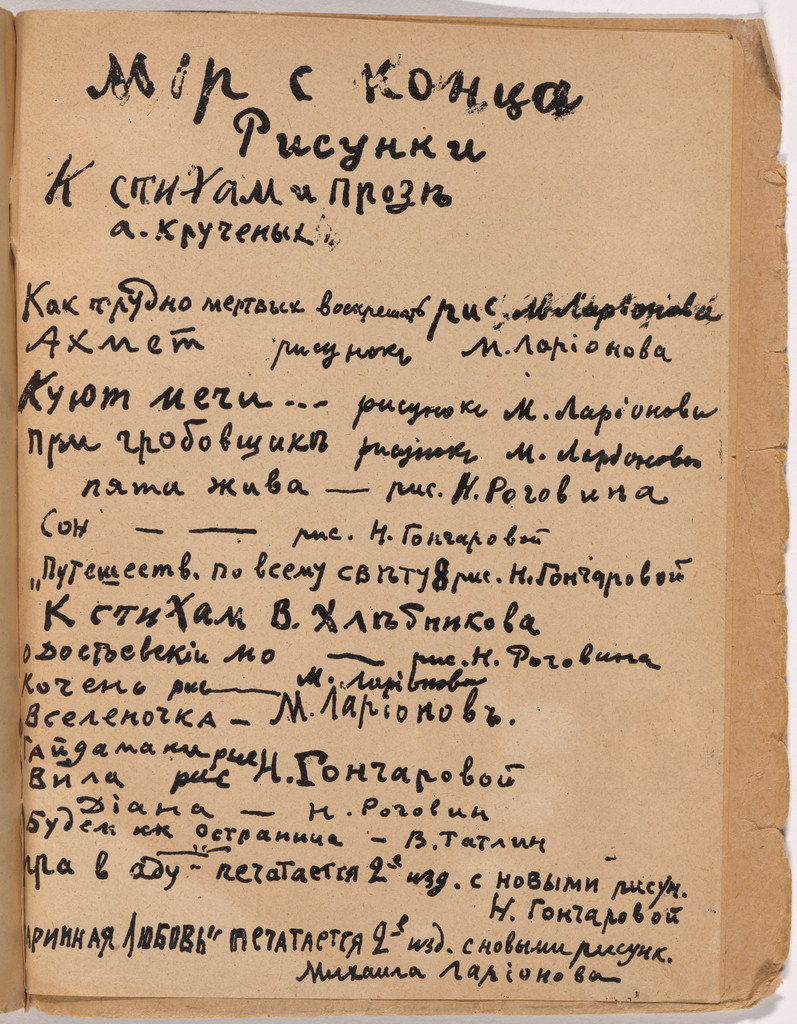 Мір с конца
Рисунки
К стихам и прозѣ
а. Крученых
Как трудно мертвых воскрешать рис. М. Ларіонова
Ахмет рисунокъ М. Ларіонова
Куют мечи... рисунокъ М. Ларіонова
При гробовщикѣ рисунокъ М. Ларіонова
пята жива — рис. Н. Роговина
Сон — — рис. Н. Гончаровой
„Путешеств. по всему свѣту 8 рис. Н. Гончаровой
К стихам В. Хлѣбникова
О Достоевскіи мо — рис. Н. Роговина
Кочень рис — М. Ларіонова
Вселеночка — М. Ларіоновъ.
Гайдамаки рис
Вила рис Н. Гончаровой
Діана — Н. Роговин
Будем кк остраница — В. Татлин
гра в аду" — печатается 2е изд. с новыми рисун.
Н. Гончаровой
аринная Любовь" печатается 2е изд. с новыми рисунк.
Михаила Ларіонова